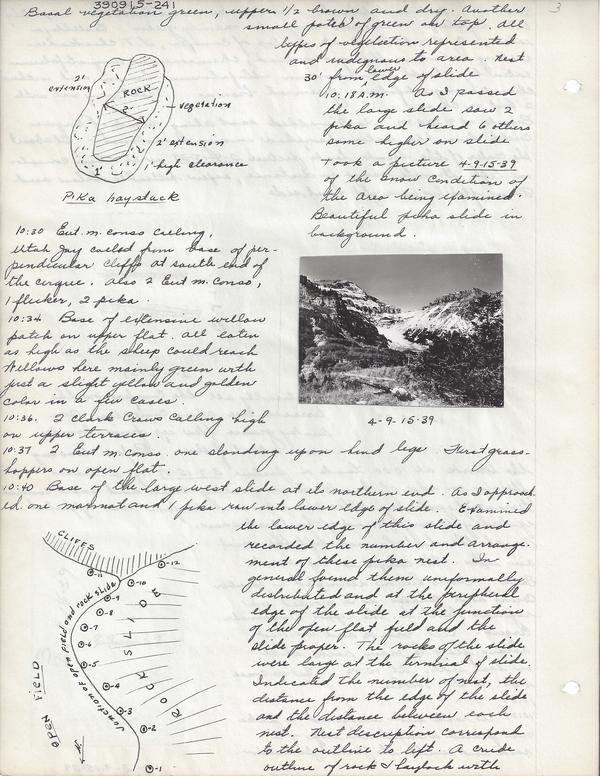 390915-241
3
Basal vegetation green, upper 1/2 brown and dry. Another
small patch of green on top. All
types of vegetation represented
and indigenous to area. Nest
30' from lower edge of slide
10:18 A.M. As I passed
the large slide saw 2
pika and heard 6 others
some higher on slide
Took a picture 4-9-15-39
of the snow condition of
the area being examined.
Beautiful pika slide in
background.
2' extension
ROCK
2'
vegetation
2' extension
1' high clearance
1'
Pika haystack
10:30 Eut. m. conso calling.
Utah Jay called from base of per-
pendicular cliffs at south end of
the cirque. Also 2 Eut m. conso,
1 flicker, 2 pika.
10:34 Base of extensive willow
patch on upper flat. All eaten
as high as the sheep could reach
Willows here mainly green with
just a slight yellow and golden
color in a few cases.
4-9-15-39
10:36. 2 Clark Crows calling high
on upper terraces.
10:37 2 Eut m. conso. one standing upon hind legs First grass-
hoppers on open flat.
10:40 Base of the large west slide at its northern end. As I approach-
ed one marmot and 1 pika ran into lower edge of slide. Examined
the lower edge of this slide and
recorded the number and arrange-
ment of these pika nest. In
general found them uniformally
distributed and at the peripheral
edge of the slide at the junction
of the open flat field and the
slide proper. The rocks of the slide
were large at the terminal of slide.
Indicated the number of nest, the
distance from the edge of the slide
and the distance between each
nest. Nest description correspond
to the outline to left. A crude
outline of rock & haystack with
CLIFFS
-12
-11
-10
-9
-8
-7
-6
-5
-4
-3
-2
-1
Junction of open field and rock slide
ROCK SLIDE
OPEN FIELD